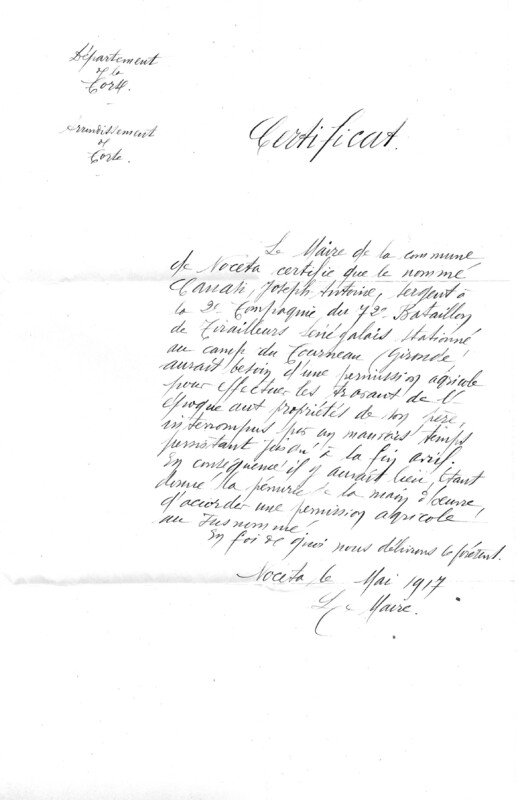 Département
de la
Corse.
Arrondissement
de
Corte.
Certificat.
Le Maire de la commune
de Noceta certifie que le nommé
Joseph Antoine, Sergent à
la 2e Compagnie du 72e Bataillon
de Tirailleurs Sénégalais stationné
au camp du Courneau (Gironde
aurait besoin d'une permission agricole
pour effectuer les travaux de l'
époque aux propriétés de son père,
interrompus par un mauvais temps
persistant jusqu'à la fin avril.
En conséquence il y aurait lieu, étant
donné la pénurie de la main d'œuvre,
d'accorder une permission agricole
au susnommé.
En foi de quoi nous délivrons le présent.
Noceta, le Mai 1917
Le Maire.